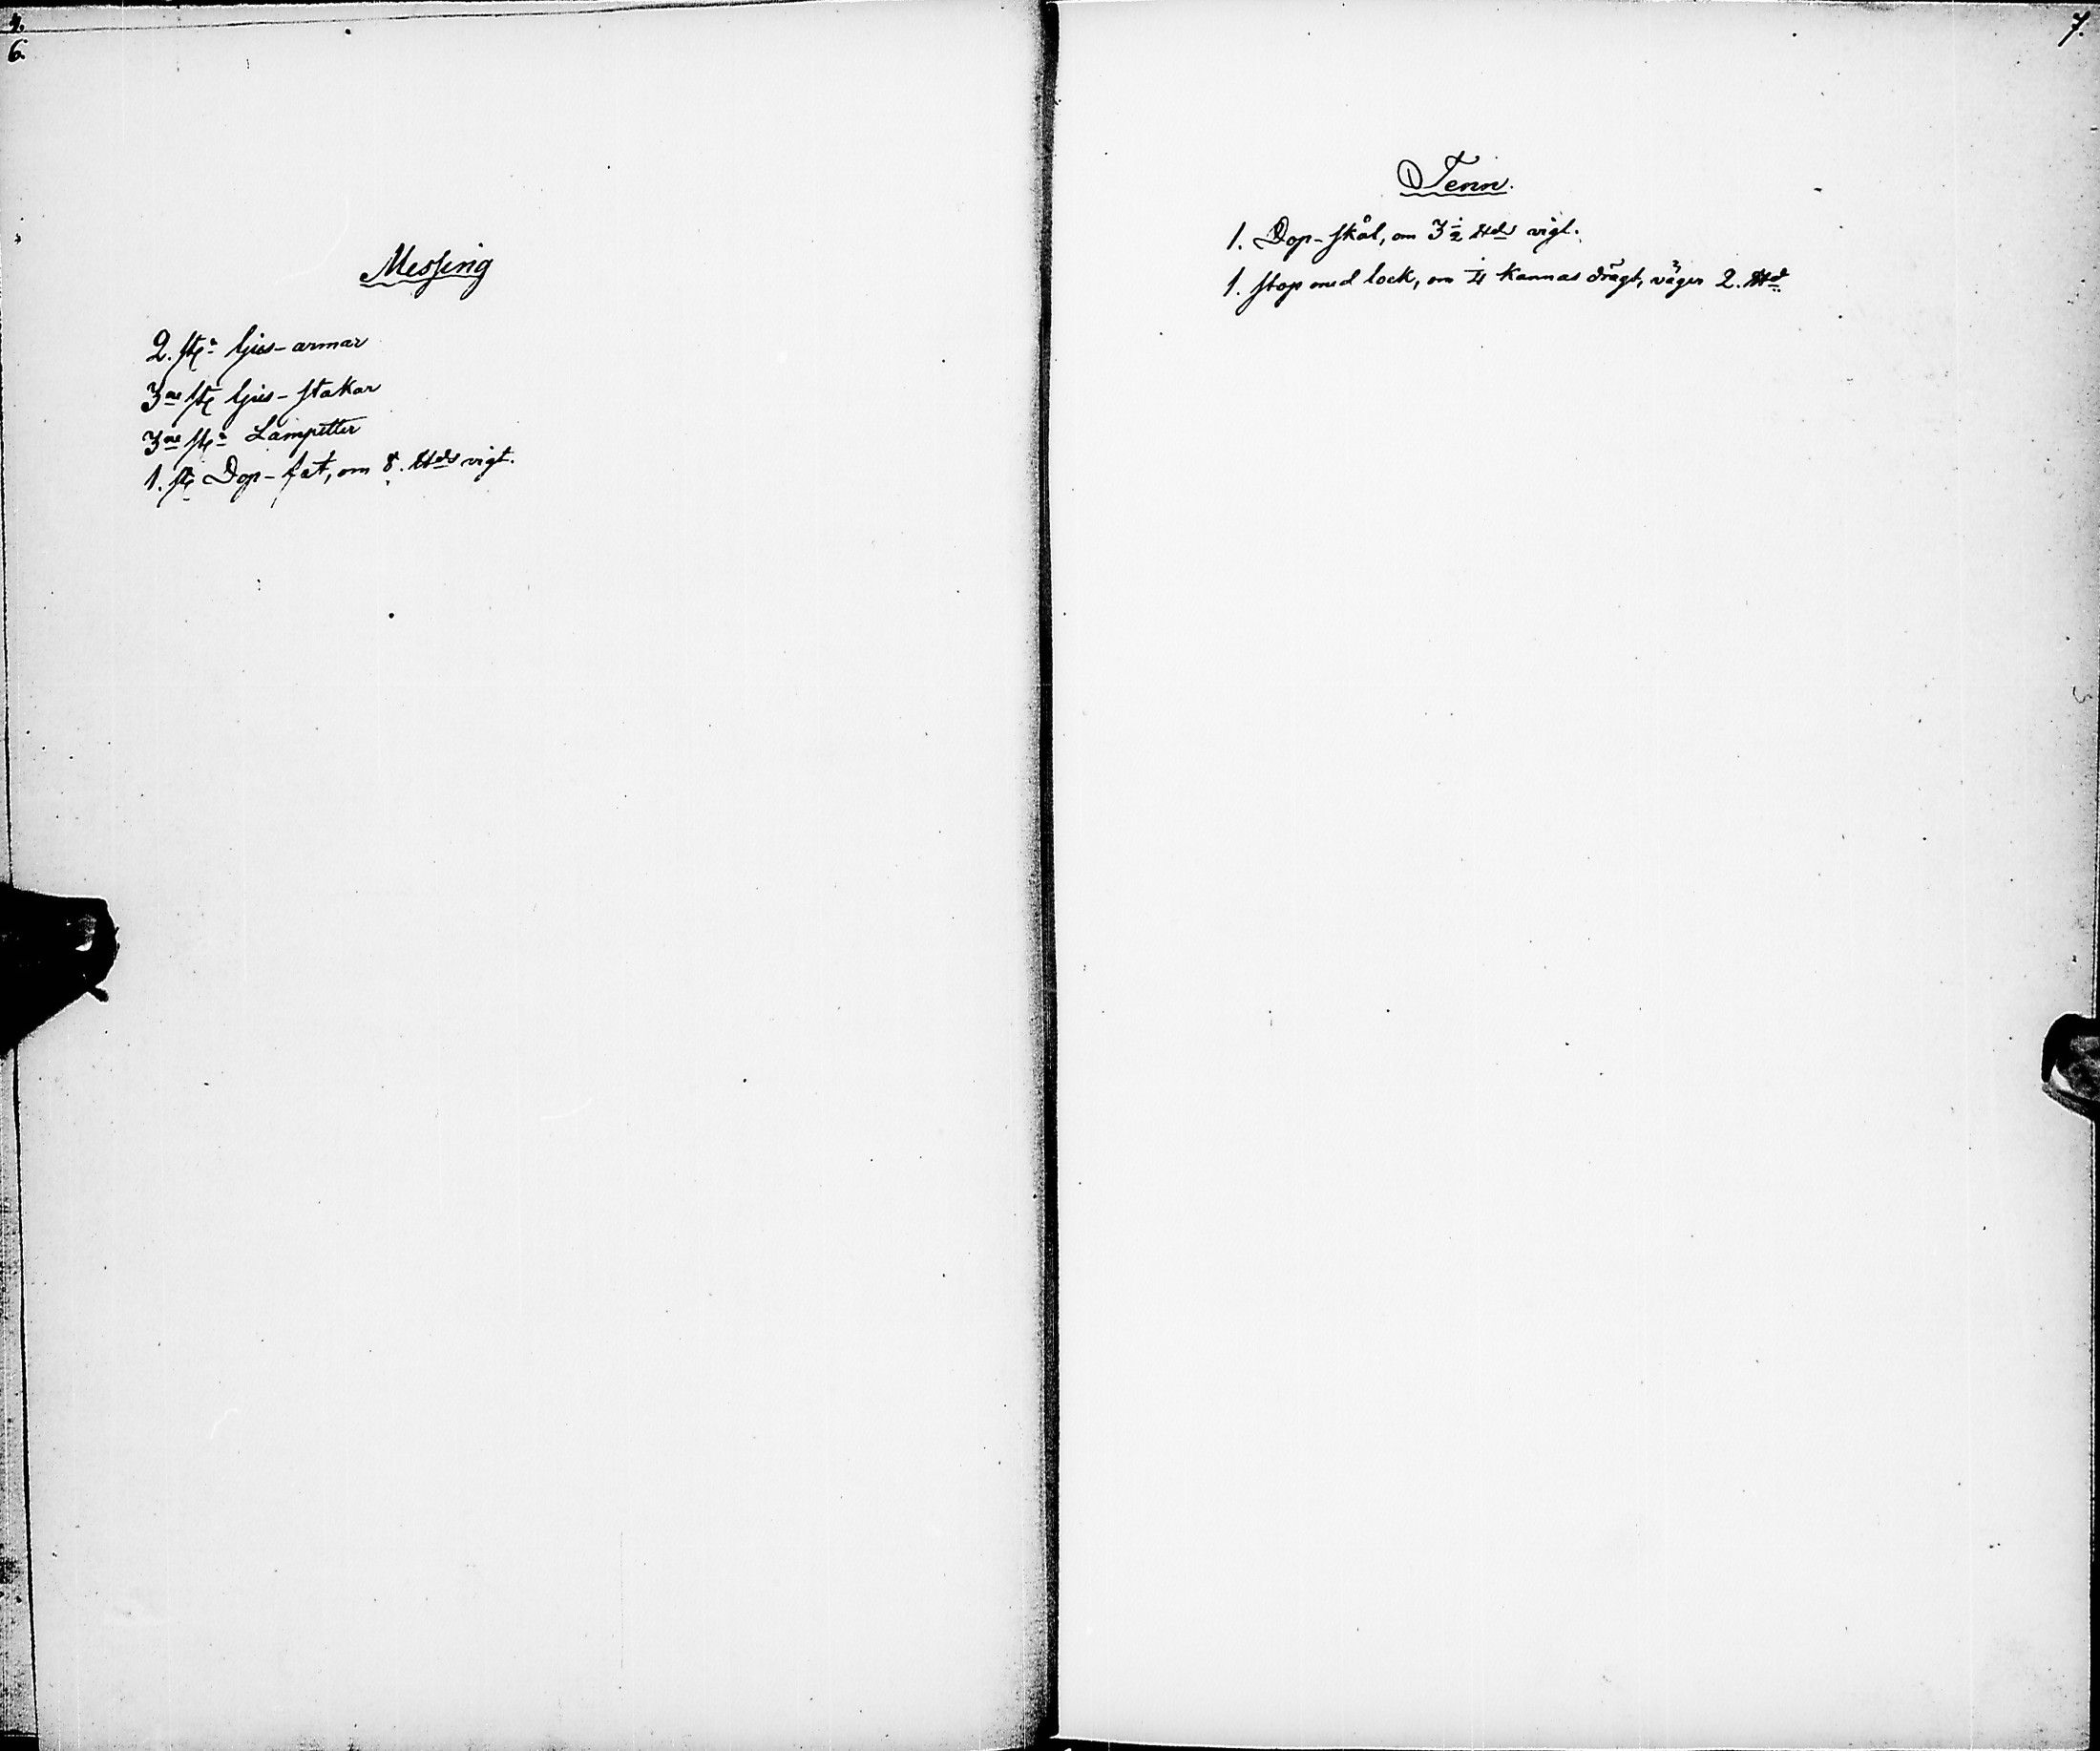 4.
6.
Messing
2. st: ljus-armar
3ne st ljus-stakar
3ne st: Lampetter
1. st Dop-fat, om 8. ℔ds vigt.
7.
Tenn.
1. Dop-skål, om 3 1/2 ℔ds vigt.
1. stop med lock, om 1/4 kannas drägt, väger 2. ℔d